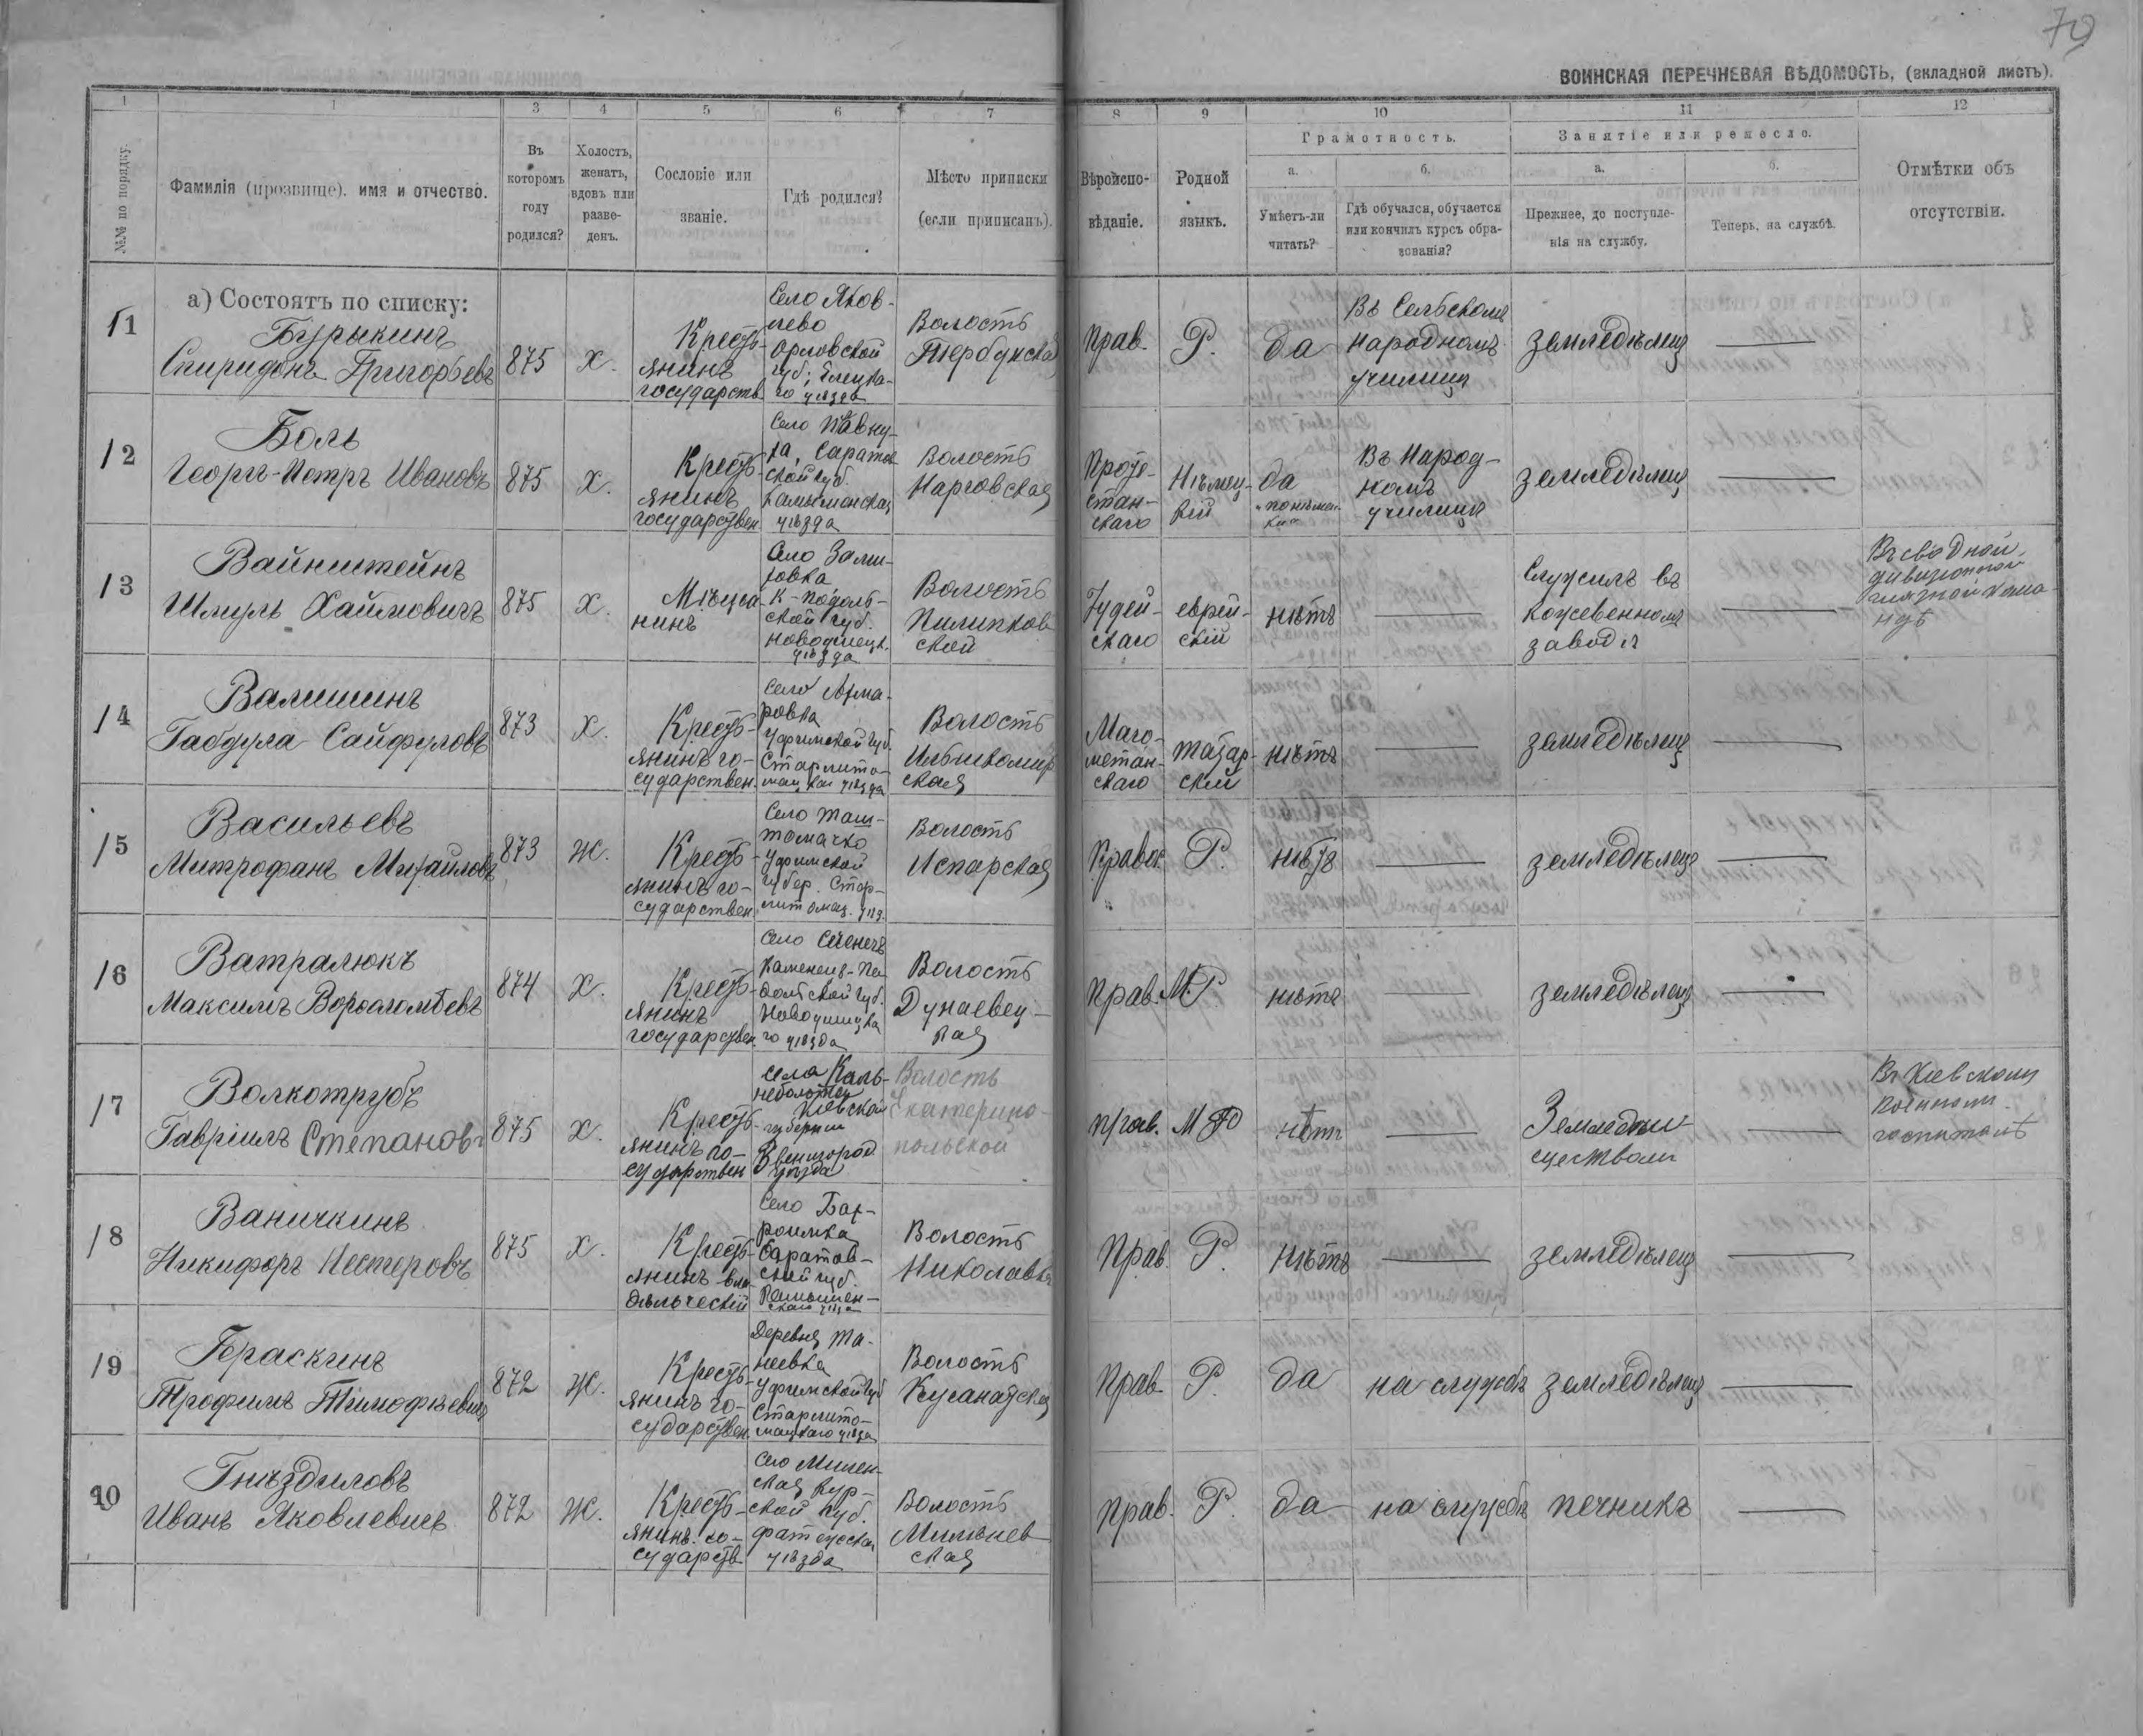 79
ВОИНСКАЯ ПЕРЕЧНЕВАЯ ВѢДОМОСТЬ, (вкладной листъ).
1 1 3 4 5 6 7 8 9 10 11 12
№№ по порядку.
Фамилія (прозвище). имя и отчество.
Въ которомъ году родился?
Холостъ, женатъ, вдовъ или разведенъ.
Сословіе или званіе.
Гдѣ родился?
Мѣсто приписки (если приписанъ).
Вѣроиспо-
вѣданіе.
Родной языкъ.
Грамотность.
а.
Умѣетъ-ли читать?
б.
Гдѣ обучался, обучается или кончилъ курсъ обра-
зованія?
Занятіе или ремесло.
а.
Прежнее, до поступле-
нія на службу.
б.
Теперь, на службѣ.
Отмѣтки объ отсутствіи.
а) Состоятъ по списку:
11
Бурыкинъ
Спиридонъ Григорьевъ
875
х.
Кресть-
янинъ
государств.
Село Яков-
лево
Орловской
губ; Елецка-
го уѣзда
Волость
Тербунская
Прав.
Р.
да
Въ Сельскомъ
народномъ
училищѣ
земледѣлец
12
Боль
Георгъ-Петръ Ивановъ
875
х.
Кресть-
янинъ
государствен
Село
Саратов
ской губ.
уѣзда
Волость
Проте-
стан-
скаго
Нѣмец-
кій
да
Въ Народ-
номъ
училищѣ
земледѣлец
13
Вайнштейнъ
Шмуль Хаимовичъ
875
х.
Мѣща-
нинъ
Село
К-Подоль-
ской губ.
уѣзда
Волость
Пилипков
ской
Іудей-
скаго
еврей-
скій
нѣтъ
Служилъ въ
кожевенномъ
заводѣ
Въ сводной
дивизіонной
глазной кома-
ндѣ
14
Валишинъ
Габдула Сайфуловъ
873
х.
Кресть-
янинъ го-
сударствен.
Село
Уфимской губ.
Стерлито-
уѣзда
Волость
Маго-
метан-
скаго
татар-
скій
нѣтъ
земледѣлец
15
Васильевъ
Митрофанъ Михайловъ
873
ж.
Кресть-
янинъ го-
сударствен.
Село Таш-
Уфимской
губер. Стер-
литомац. уѣз.
Волость
Правос.
Р.
нѣтъ
земледѣлец
16
Ватралюкъ
Максимъ
874
х.
Кресть-
янинъ
государствен.
Село
Каменец-По-
дольской губ.
Новоушицка
го уѣзда
Волость
Дунаевец-
кая
Прав.
М.Р.
нѣтъ
земледѣлец
17
Волкотрубъ
Гавріилъ Степановъ
875
х.
Кресть-
янинъ го-
сударствен
села Каль-
неболотец
Кіевской
губерніи
Звенигород
уѣзда
Волость
Екатерино-
польской
прав.
М Р
нѣтъ
Въ Кіевскомъ
военномъ
госпиталѣ
18
Ваничкинъ
Никифоръ Нестеровъ
875
х.
Кресть-
янинъ вла-
дѣльческій
Село
Саратов-
ской губ.
Волость
Прав.
Р.
нѣтъ
земледѣлец
19
Гераскинъ
Трофимъ Тимофѣевичъ
872
ж.
Кресть-
янинъ го-
сударствен.
Деревня Та-
неевка
Уфимской губ
Стерлито-
мацкаго уѣзда
Волость
Куганакская
Прав.
Р.
да
на службѣ
земледѣлец
20
Гнѣздиловъ
Иванъ Яковлевичъ
872
ж.
Кресть-
янинъ го-
сударств
Село Милен-
ская Кур-
ской губ.
уѣзда
Волость
прав.
Р.
да
на службѣ
печникъ